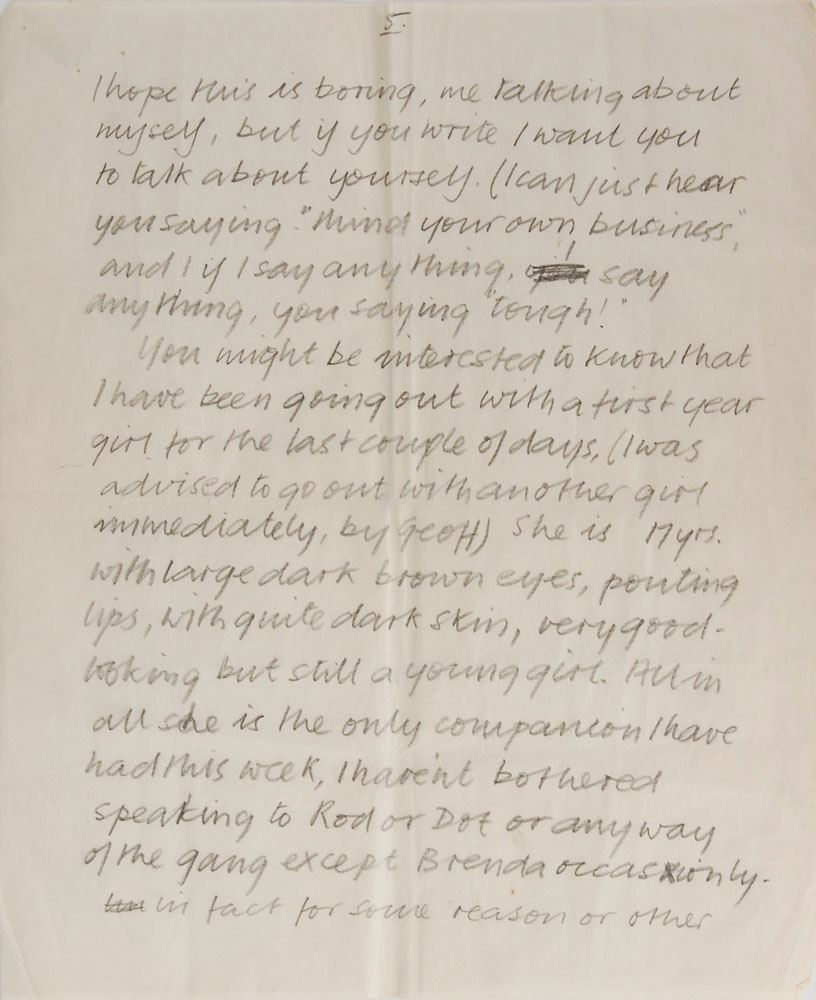 5.
I hope this is boring, me talking about
myself, but if you write I want you
to talk about yourself. (I can just hear
you saying "Mind your own business",
and I if I say anything, say
anything, you saying "tough!"
You might be interested to know that
I have been going out with a first year
girl for the last couple of days, (I was
advised to go out with another girl
immediately, by Geoff) She is 17yrs.
with large dark brown eyes, pouting
lips, with quite dark skin, very good-
looking but still a young girl. All in
all she is the only companion I have
had this week, I haven't bothered
speaking to Rod or Dot or any way
of the gang except Brenda occasionly.
in fact for some reason or other